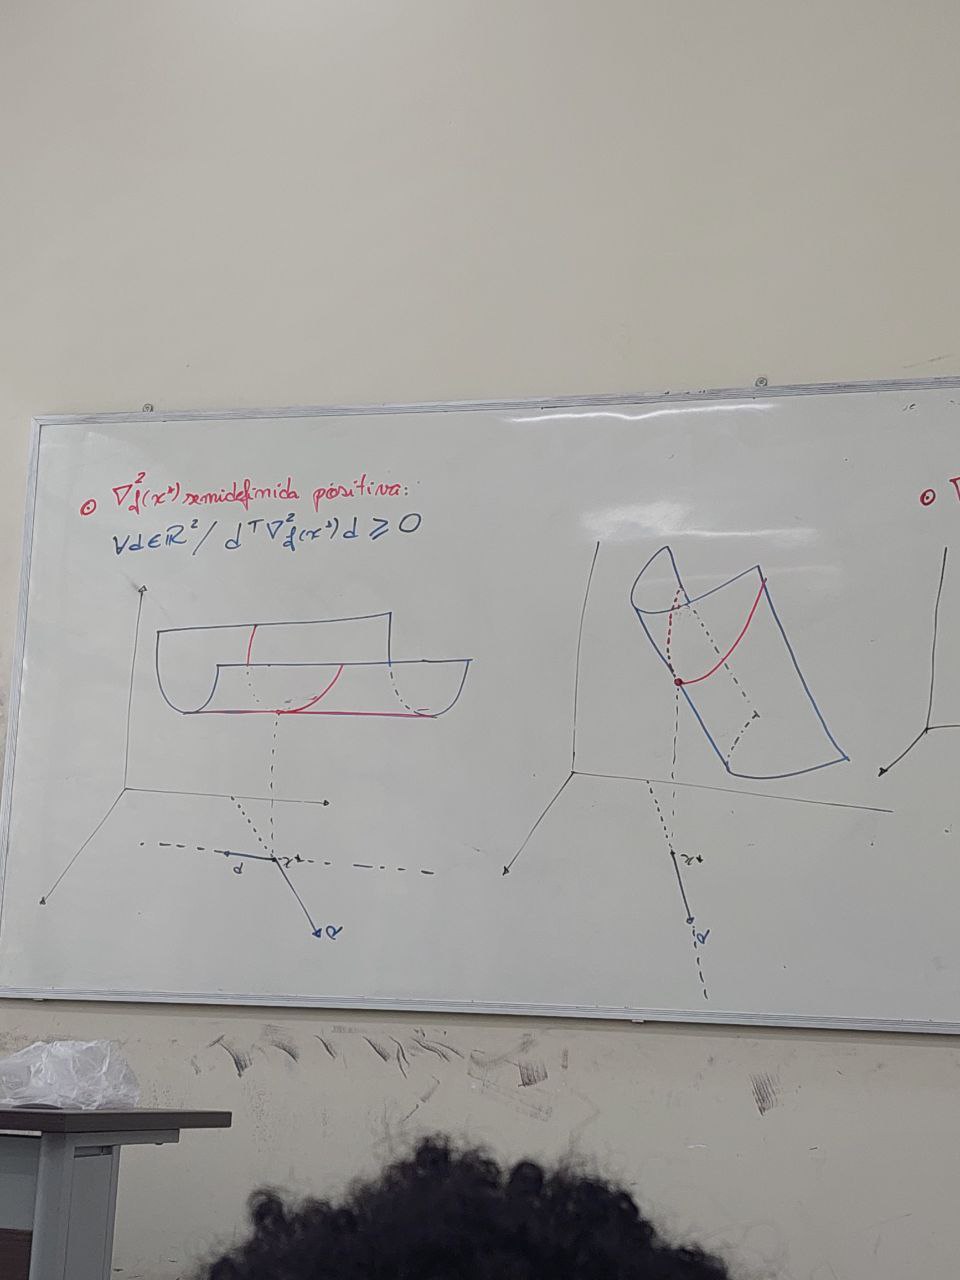 ⊙ ∇²f(x*) semidefinida positiva:
∀d∈ℝ² / dᵀ∇²f(x*)d ≥ 0
d
x*
d
x*
d
⊙ ∇